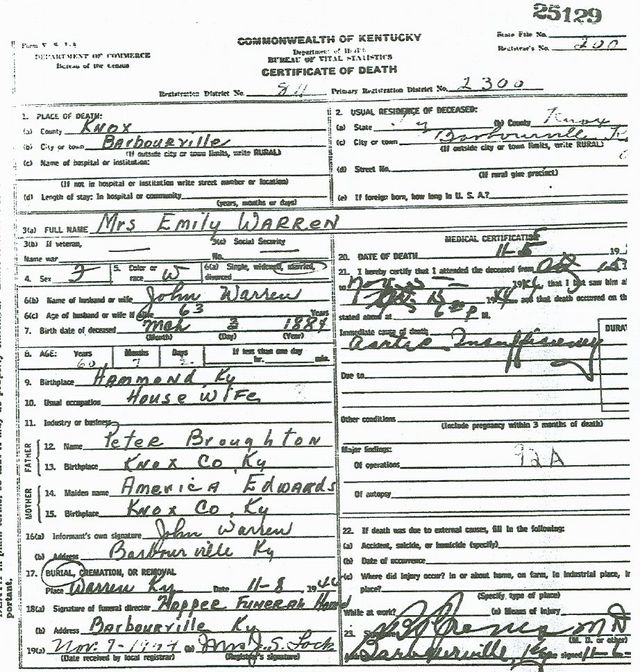 25129
Form V. S. 1-A
DEPARTMENT OF COMMERCE
Bureau of the Census
COMMONWEALTH OF KENTUCKY
Department of Health
BUREAU OF VITAL STATISTICS
CERTIFICATE OF DEATH
State File No.
Registrar's No. 200
Registration District No. 84 Primary Registration District No. 2300
1. PLACE OF DEATH:
(a) County Knox
(b) City or town Barbourville
(If outside city or town limits, write RURAL)
(c) Name of hospital or institution:
(If not in hospital or institution write street number or location)
(d) Length of stay: In hospital or community
(years, months or days)
2. USUAL RESIDENCE OF DECEASED:
(a) State Ky (b) County Knox
(c) City or town Barbourville K
(If outside city or town limits, write RURAL)
(d) Street No.
(If rural give precinct)
(e) If foreign born, how long in U. S. A.?
3(a) FULL NAME Mrs Emily Warren
3(b) If veteran, 3(c) Social Security
Name war No.
4. Sex F 5. Color or race W 6(a) Single, widowed, married, divorced
6(b) Name of husband or wife John Warren
6(c) Age of husband or wife if 63 Years
7. Birth date of deceased Mch 3 1884
(Month) (Day) (Year)
8. AGE: Years Months Days If less than one day
60 hr. min.
9. Birthplace Hammond, Ky
10. Usual occupation House Wife
11. Industry or business
FATHER
12. Name Peter Broughton
13. Birthplace Knox Co, Ky
MOTHER
14. Maiden name America Edwards
15. Birthplace Knox Co, Ky
16(a) Informant's own signature John Warren
(b) Address Barbourville Ky
17. BURIAL, CREMATION, OR REMOVAL
Place Warren Ky Date 11-8 1944
18(a) Signature of funeral director Hopper Funeral Home
(b) Address Barbourville Ky
19(a) Nov. 9-1944 (b) Mrs J. S. Lock
(Date received by local registrar) (Registrar's signature)
MEDICAL CERTIFICATION
20. DATE OF DEATH 11-5 19
21. I hereby certify that I attended the deceased from Oct 15
to Nov 5 1944 that I last saw him a
1944 and that death occurred on th
stated above at 6 P M.
Immediate cause of death DURAT
Aortic Insufficiency
Due to
Other conditions
(Include pregnancy within 3 months of death)
Major findings:
Of operations 92A
Of autopsy
22. If death was due to external causes, fill in the following:
(a) Accident, suicide, or homicide (specify)
(b) Date of occurrence
(c) Where did injury occur? in or about home, on farm, in industrial place, in
place?
(Specify type of place)
While at work? (e) Means of injury
23. MD
(M. D. or other)
Address Barbourville, Ky signed 11-6-
portant.